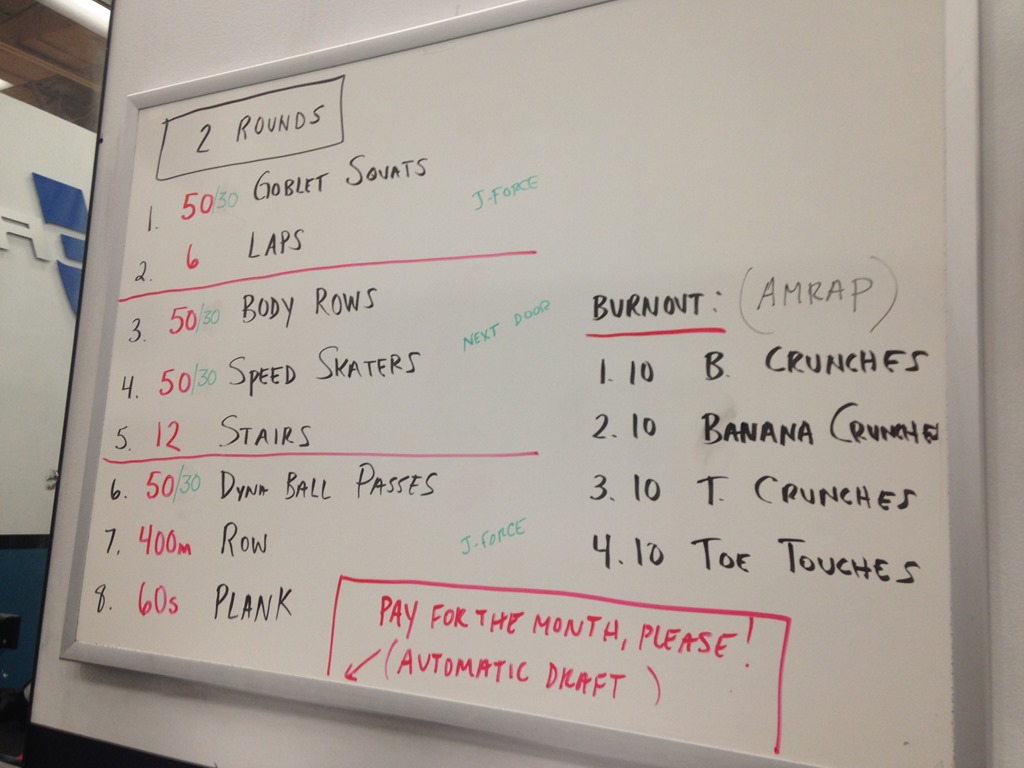 2 ROUNDS
1. 50/30 GOBLET SQUATS
J-FORCE
2. 6 LAPS
3. 50/30 BODY ROWS
NEXT DOOR
4. 50/30 SPEED SKATERS
5. 12 STAIRS
6. 50/30 DYNA BALL PASSES
7. 400m ROW
J-FORCE
8. 60s PLANK
BURNOUT: (AMRAP)
1. 10 B. CRUNCHES
2. 10 BANANA CRUNCHES
3. 10 T. CRUNCHES
4. 10 TOE TOUCHES
PAY FOR THE MONTH, PLEASE!
(AUTOMATIC DRAFT)